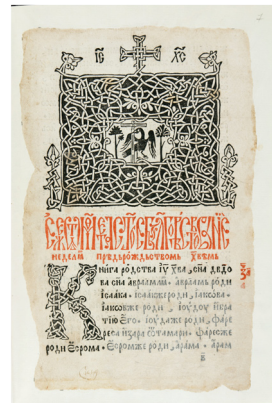 ІС ХС
недѣлꙗ прѣдьрождьствомь хвѣмь
Книга родства іу хва, сна двдо
ва сна авраамлꙗ. авраамь роди
исаака. исаакже роди, іакова.
іаковже роди, іоудоу ибра
тїю его. іоудаже роди, фаре
са изара ѿтамари. фаресже
роди есрома. есромже роди, арама. арам